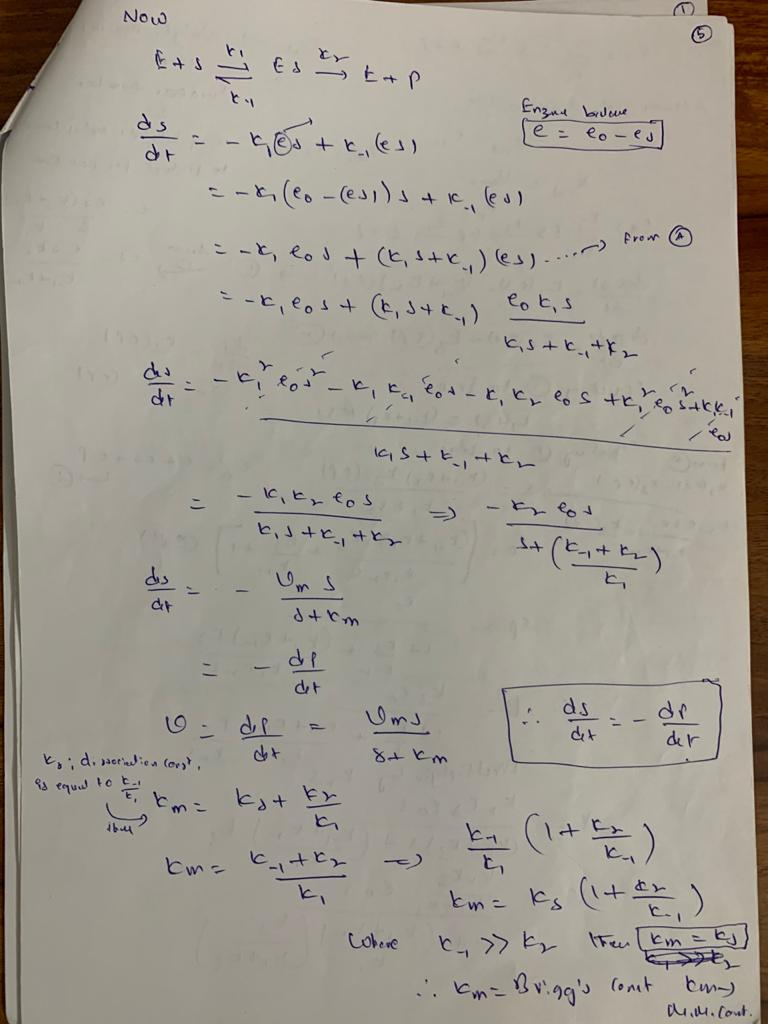 ①
⑤
Now
E + s ⇌ Es → E + p
k1 k2
k-1
Enzyme balance
e = e0 - es
ds/dt = - k1 e s + k-1 (es)
= - k1 (e0 - (es)) s + k-1 (es)
= - k1 e0 s + (k1 s + k-1) (es) .....→ From Ⓐ
= - k1 e0 s + (k1 s + k-1) e0 k1 s / k1 s + k-1 + k2
ds/dt = - k1² e0 s² - k1 k-1 e0 s - k1 k2 e0 s + k1² e0 s² + k1 k-1 e0 s / k1 s + k-1 + k2
= - k1 k2 e0 s / k1 s + k-1 + k2 ⇒ - k2 e0 s / s + (k-1 + k2 / k1)
ds/dt = - υm s / s + km
= - dp/dt
υ = dp/dt = υm s / s + km
∴ ds/dt = - dp/dt
ks; dissociation const,
is equal to k-1/k1
km = ks + k2/k1
km = k-1 + k2 / k1 ⇒ k-1/k1 (1 + k2/k-1)
km = ks (1 + k2/k-1)
where k-1 >> k2 then km = ks
∴ km = Brigg's const km →
M.M. const.